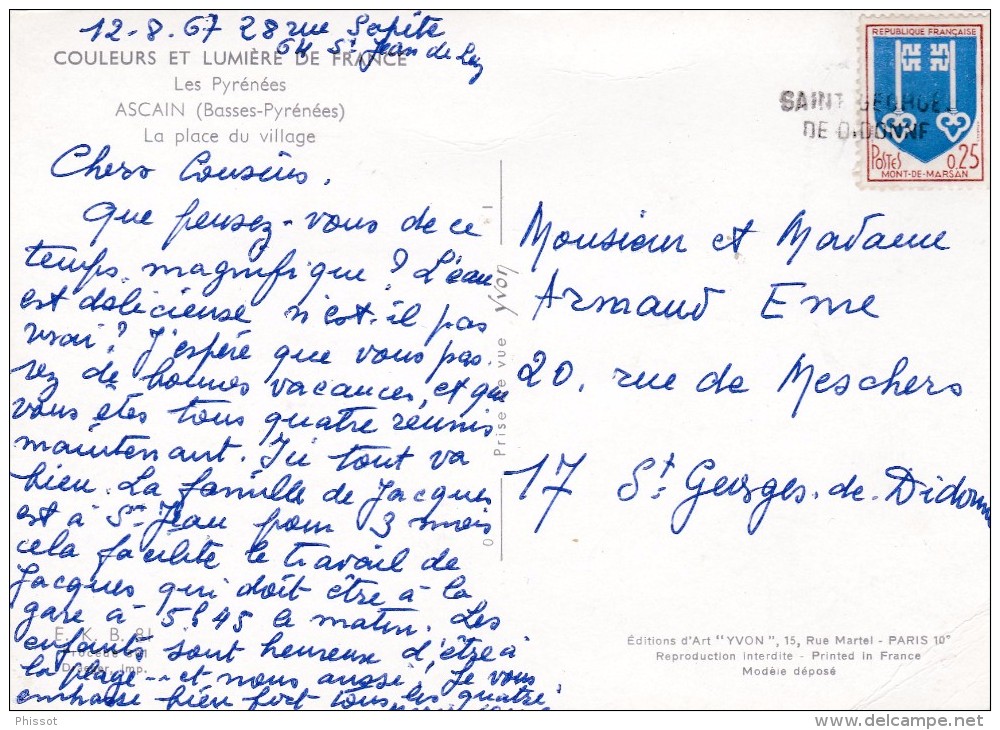 12-8.67 28 rue Sopite
64 St Jean de Luz
COULEURS ET LUMIÈRE DE FRANCE
Les Pyrénées
ASCAIN (Basses-Pyrénées)
La place du village
Chers Cousins,
Que pensez-vous de ce
temps magnifique ? L'eau
est délicieuse n'est-il pas
vrai ? J'espère que vous pas-
sez de bonnes vacances, et que
vous êtes tous quatre réunis
maintenant. Ici tout va
bien. La famille de Jacques
est à St Jean pour 3 mois
cela facilite le travail de
Jacques qui doit être à la
gare à 5h45 le matin. Les
enfants sont heureux d'être à
la plage... et nous aussi ! Je vous
embrasse bien fort tous les quatre.
E. K. B. 81
Draeger, imp.
Prise de vue Yvon
REPUBLIQUE FRANÇAISE
POSTES 0,25
MONT-DE-MARSAN
SAINT GEORGES
DE DIDONNE
Monsieur et Madame
Armand Eme
20, rue de Meschers
17 St Georges-de-Didonne
Éditions d'Art "YVON", 15, Rue Martel - PARIS 10e
Reproduction interdite - Printed in France
Modèle déposé
Phissot
delcampe.net